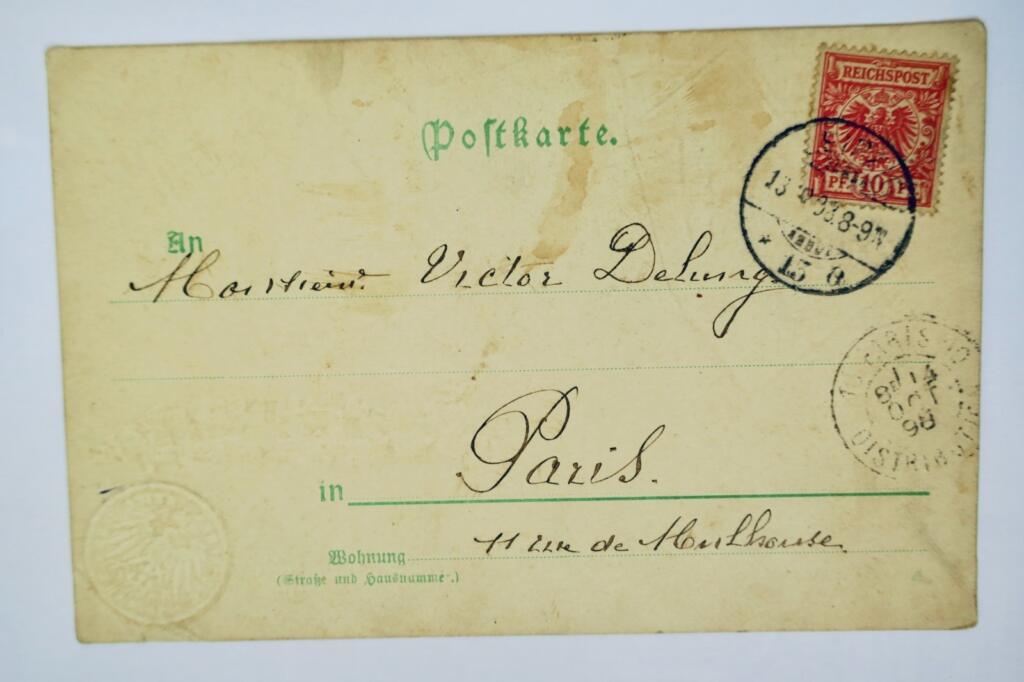 Postkarte.
REICHSPOST
PF 10 PF
13 98.8-9N
15 a
An
Monsieur Victor Delung
PARIS
14
OCT
98
DISTRIB
in Paris.
Wohnung
11 rue de Mulhouse
(Straße und Hausnumme.)